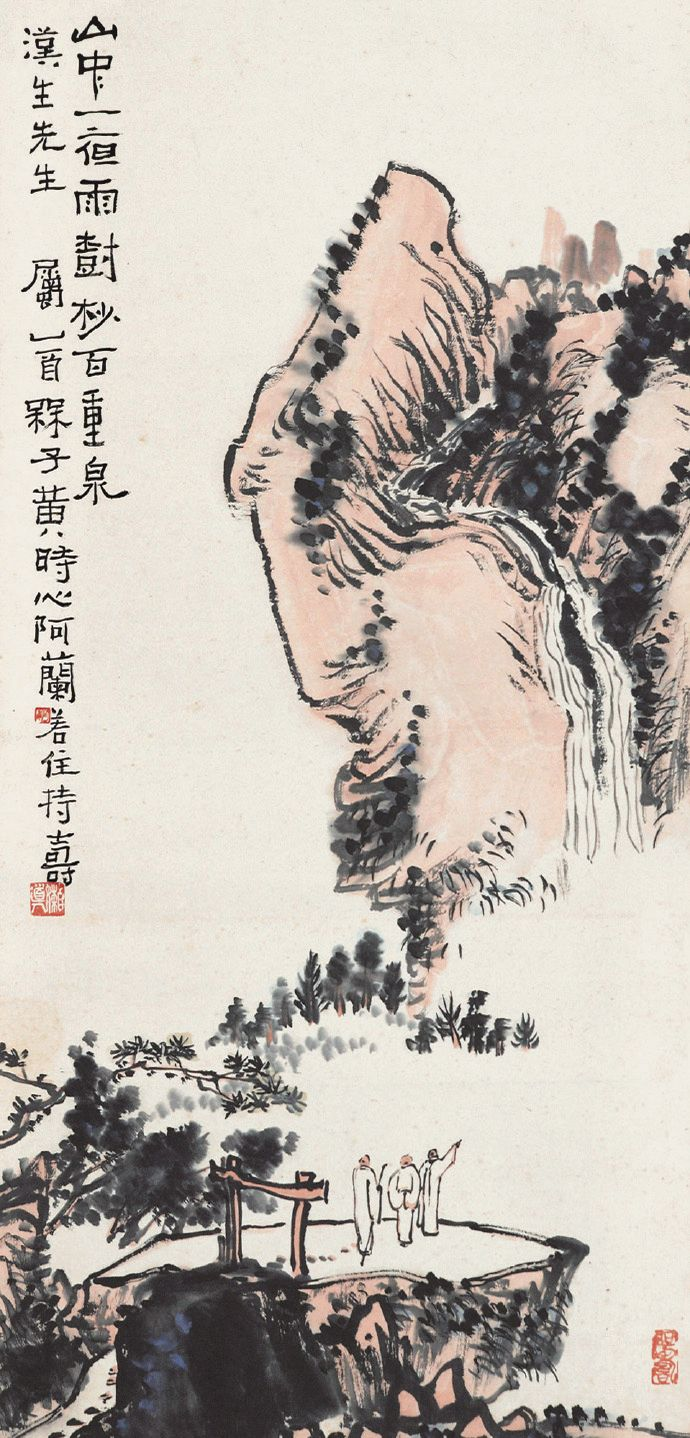 山中一夜雨樹杪百重泉
漢生先生 屬 一百 黎子黃時心阿蘭若住持壽